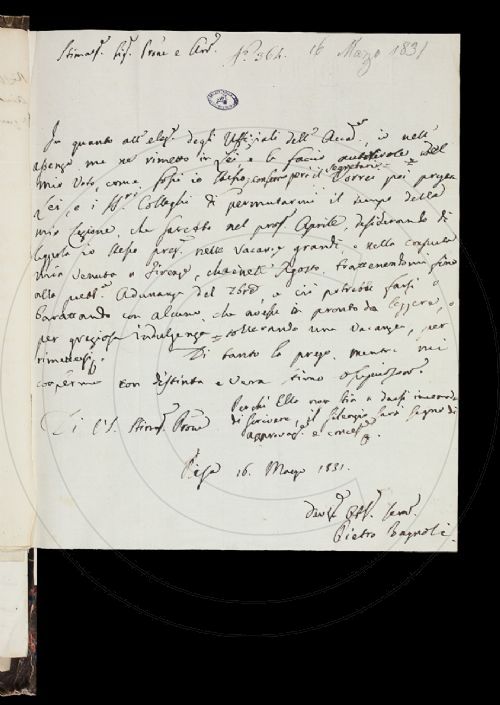 Stimat. Sig. Prōne e Am.
N°. 364. 16 Marzo 1831
In quanto all' elez. degli Uffiziali dell' Accad. io nell'
assenza me ne rimetto in Lei e le faccio autorevole del
mio Voto, come fossi io stesso; confermo però il Segretario. Vorrei poi pregar
Lei e i Sig.ri Colleghi di permutarmi il tempo della
mia Lezione, che sarebbe nel pross. Aprile, desiderando di
leggerla io stesso nelle vacanze grandi e nella consueta
mia venuta a Firenze, che è nell' Agosto, trattenendomi fino
alla pubb. Adunanza del 7bre e ciò potrebbe farsi o
barattando con alcuno, che avesse in pronto da leggere, o
per graziosa indulgenza tollerando una vacanza, per
rimettersi. Di tanto la prego, mentre mi
confermo con distinta e vera stima
Perchè Ella non stia a darsi incomodo
Di V.S. Stimat. Prōne di scrivere, il silenzio sarà segno di
approvaz. e concess.
Pisa 16. Marzo 1831.
Dev. Obb. Serv.
Pietro Bagnoli.